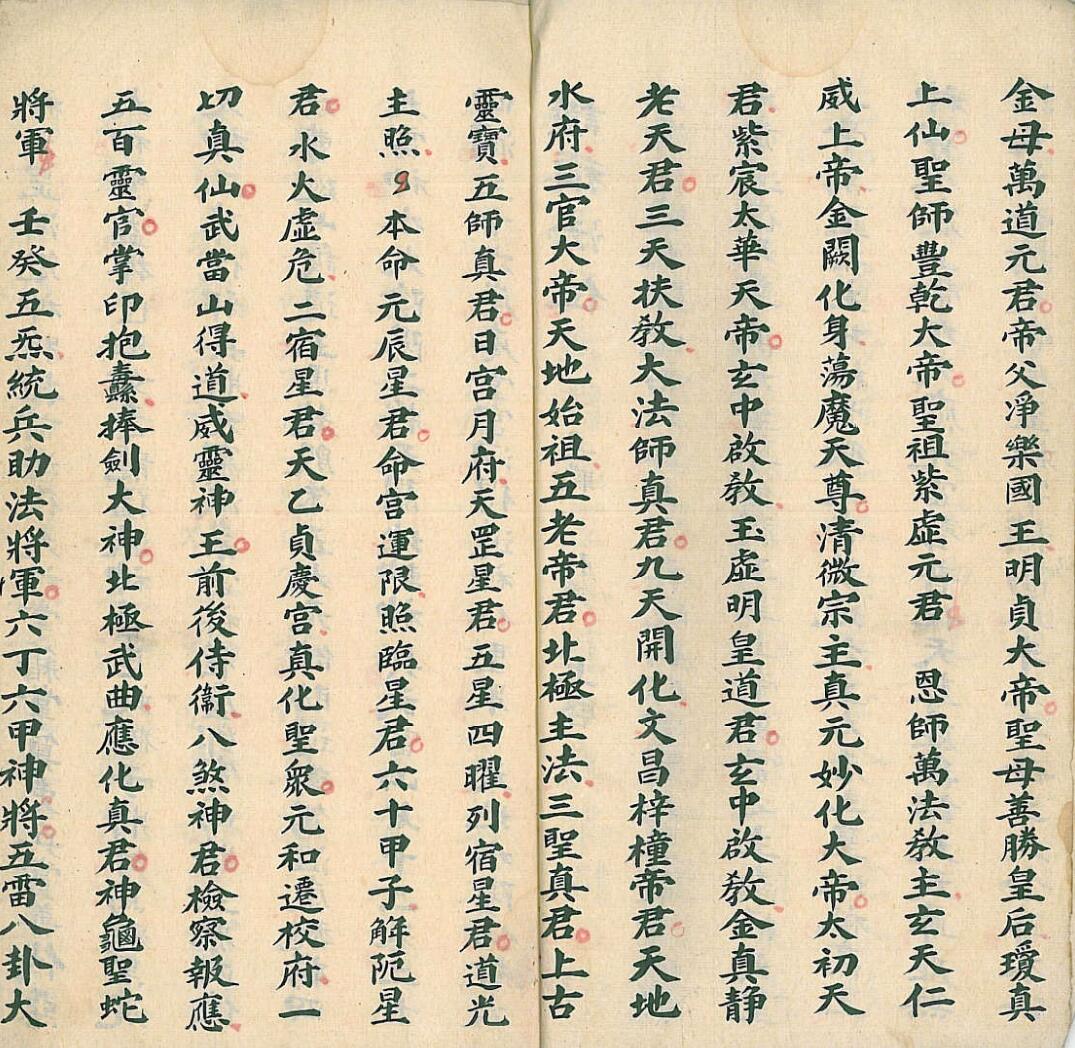 金母萬道元君帝父凈樂國王明貞大帝聖母善勝皇后瓊真
上仙聖師豐乾大帝聖祖紫虛元君 恩師萬法教主玄天仁
威上帝金闕化身蕩魔天尊清微宗主真元妙化大帝太初天
君紫宸太華天帝玄中啟教玉虛明皇道君玄中啟教金真靜
老天君三天扶教大法師真君九天開化文昌梓橦帝君天地
水府三官大帝天地始祖五老帝君北極主法三聖真君上古
靈寶五師真君日宮月府天罡星君五星四曜列宿星君道光
主照本命元辰星君命宮運限照臨星君六十甲子解阨星
君水火虛危二宿星君天乙貞慶宮真化聖眾元和遷校府一
切真仙武當山得道威靈神王前後侍衛八煞神君檢察報應
五百靈官掌印抱纛捧劍大神北極武曲應化真君神龜聖蛇
將軍 壬癸五炁統兵助法將軍六丁六甲神將五雷八卦大